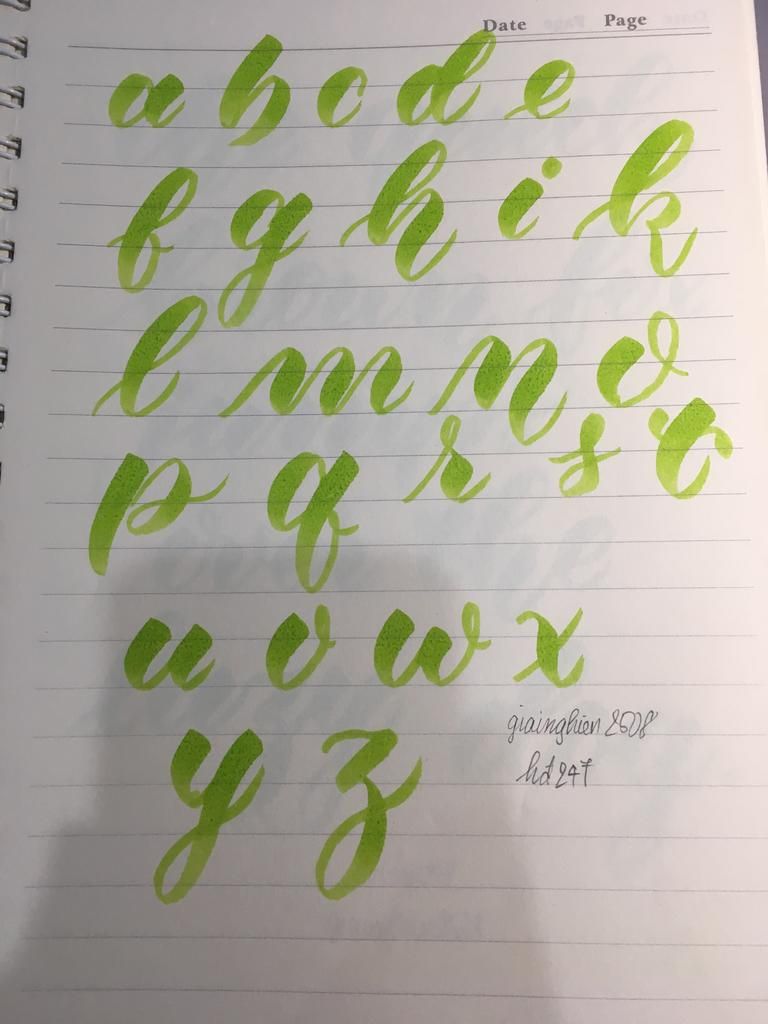 Date Page
a b c d e
f g h i k
l m n o
p q r s t
u v w x
y z
giainghien 2508
hd247